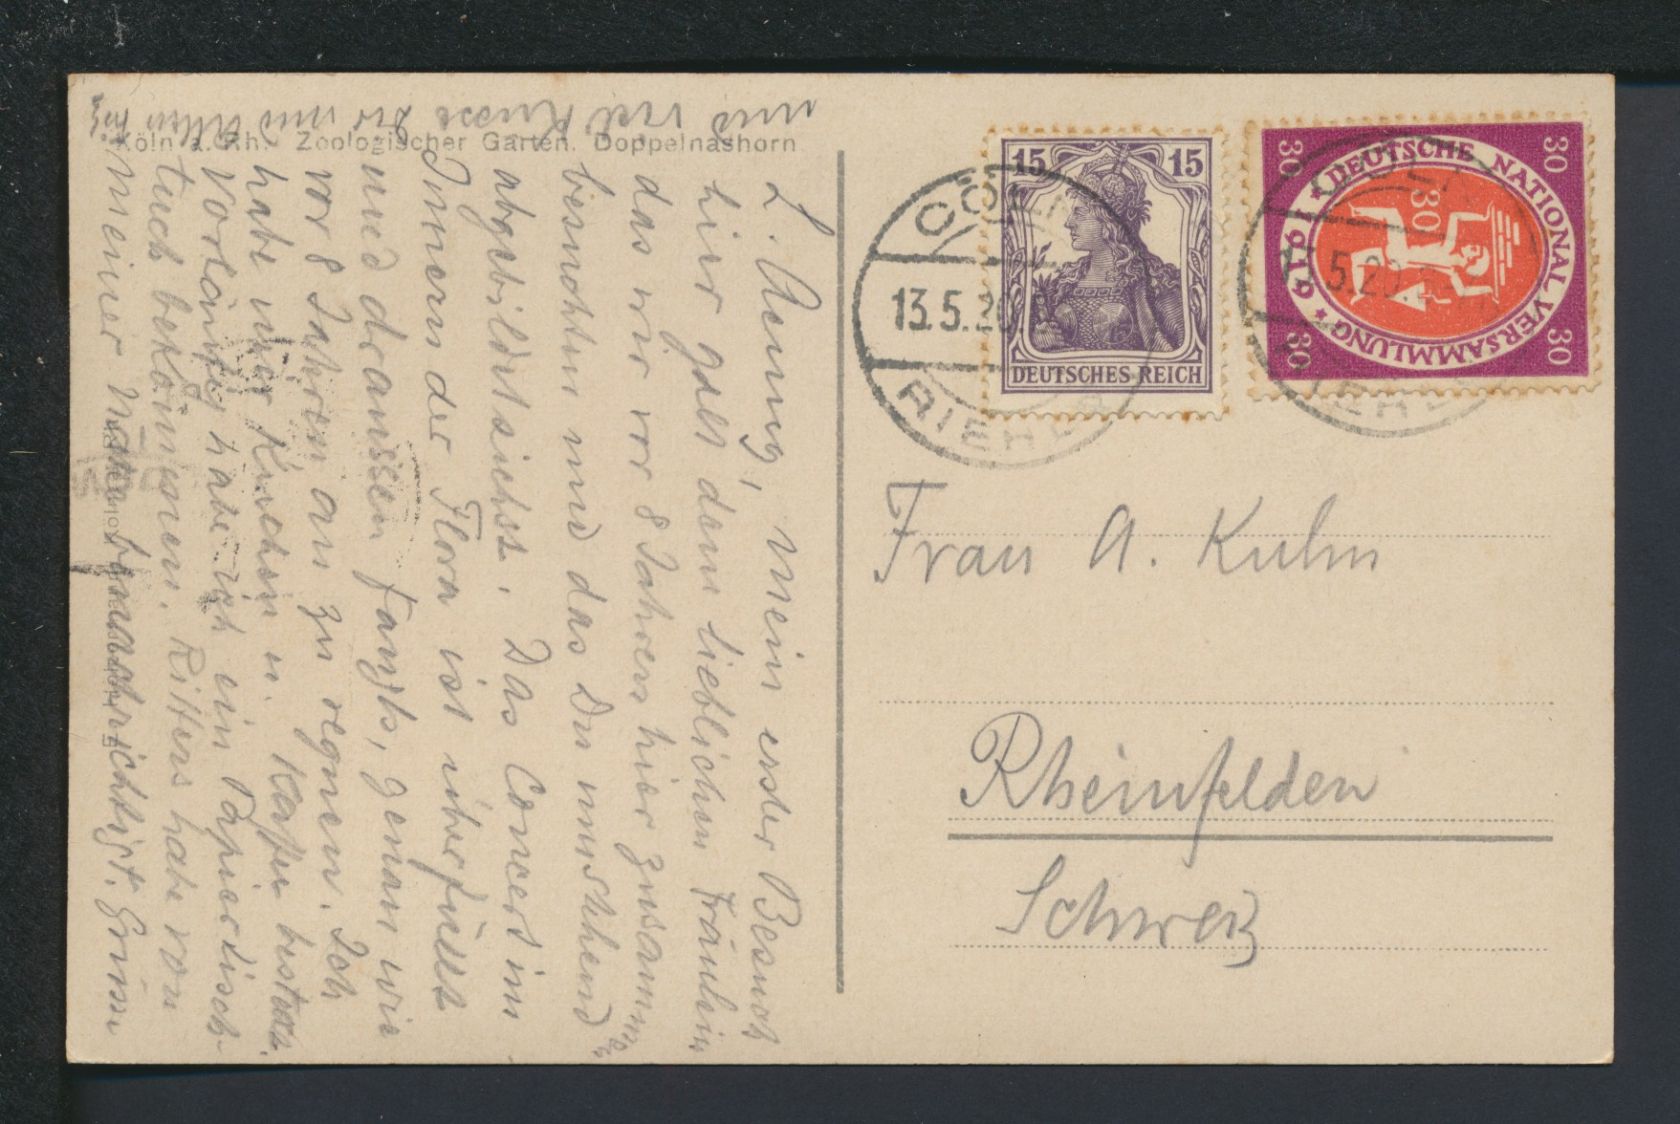 Köln a. Rh. Zoologischer Garten. Doppelnashorn
L. Aenny, mein erster Besuch
hier galt dem lieblichen Fräulein
das wir vor 8 Jahren hier zusammen
besuchten und das Du umstehend
abgebildet siehst. Das Concert im
Innern der Flora ist überfüllt
und draussen fangts, genau wie
vor 8 Jahren an zu regnen. Ich
habe mir Kuchen u. Kaffee bestellt.
Vorläufig habe ich ein Papiertisch-
tuch bekommen. Ritters habe von
meiner benachrichtigt. Grüsse
und viel Küsse Dir und Allen
15 15
DEUTSCHES REICH
DEUTSCHE NATIONALVERSAMMLUNG
1919
30 30
30
30 30
CÖLN
13.5.20.
RIEHL
CÖLN
13.5.20.
RIEHL
Frau A. Kuhn
Rheinfelden
Schweiz